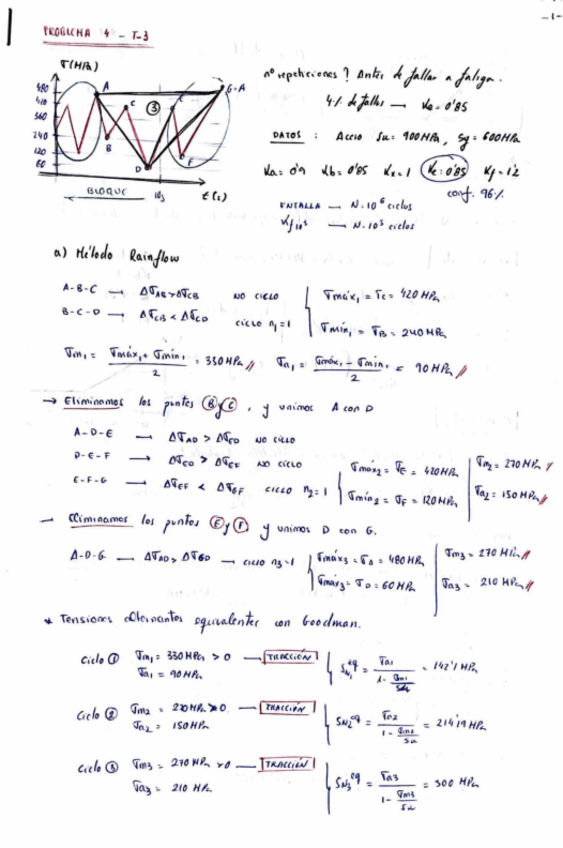 -1-
PROBLEMA 4 - T-3
σ(MPa)
480
420
360
240
120
60
A
B
C
3
D
E
F
G=A
10s
t(s)
BLOQUE
nº repeticiones? Antes de fallar a fatiga.
4% de fallos → Ke = 0'85
DATOS : Acero Su = 900MPa, Sy = 600MPa
Ka = 0'9 Kb = 0'85 Kc = 1 Ke = 0'85 Kf = 1'2
conf. 96%
ENTALLA → N = 10⁶ ciclos
Kf10³ → N = 10³ ciclos
a) Método Rainflow
A-B-C → ΔσAB > ΔσCB NO CICLO
B-C-D → ΔσCB < ΔσCD CICLO n1 = 1
σmáx1 = σC = 420 MPa
σmín1 = σB = 240 MPa
σm1 = (σmáx1 + σmín1)/2 = 330 MPa
σa1 = (σmáx1 - σmín1)/2 = 90 MPa
→ Eliminamos los puntos B y C, y unimos A con D
A-D-E → ΔσAD > ΔσED NO CICLO
D-E-F → ΔσED > ΔσEF NO CICLO
E-F-G → ΔσEF < ΔσGF CICLO n2 = 1
σmáx2 = σE = 420 MPa
σmín2 = σF = 120 MPa
σm2 = 270 MPa
σa2 = 150 MPa
→ Eliminamos los puntos E y F, y unimos D con G.
A-D-G → ΔσAD > ΔσGD → CICLO n3 = 1
σmáx3 = σA = 480 MPa
σmáx3 = σD = 60 MPa
σm3 = 270 MPa
σa3 = 210 MPa
* Tensiones alternantes equivalentes con Goodman.
Ciclo 1 σm1 = 330 MPa > 0 → TRACCIÓN
σa1 = 90 MPa
SN1eq = σa1/(1 - σm1/Su) = 142'1 MPa
Ciclo 2 σm2 = 270 MPa > 0 → TRACCIÓN
σa2 = 150 MPa
SN2eq = σa2/(1 - σm2/Su) = 214'19 MPa
Ciclo 3 σm3 = 270 MPa > 0 → TRACCIÓN
σa3 = 210 MPa
SN3eq = σa3/(1 - σm3/Su) = 300 MPa